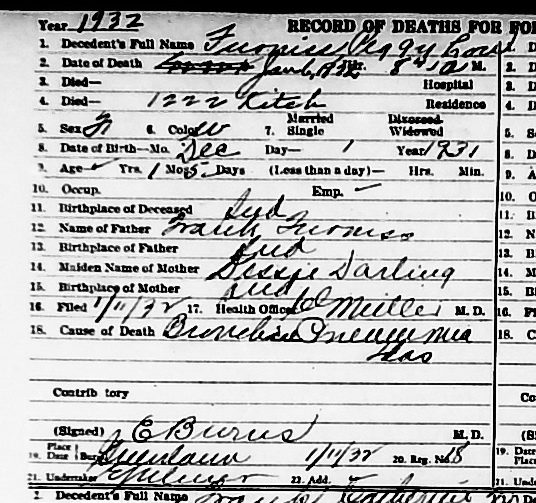 Year 1932 RECORD OF DEATHS FOR FOR
1. Decedent's Full Name Twomiss Peggy Lou
2. Date of Death Jan 6, 1932 Hr. 8 A M.
3. Died— Hospital
4. Died— 1222 Kitch Residence
5. Sex F 6. Color W 7. Married Single Divorced Widowed
8. Date of Birth—Mo. Dec Day— 1 Year 1931
9. Age Yrs. 1 Mos 5 Days (Less than a day)— Hrs. Min.
10. Occup. Emp.
11. Birthplace of Deceased Ind
12. Name of Father Frank Twomiss
13. Birthplace of Father Ind
14. Maiden Name of Mother Bessie Darling
15. Birthplace of Mother Ind
16. Filed 1/11/32 17. Health Officer Miller M. D.
18. Cause of Death Bronchia Pneumonia
Contrib tory
(Signed) E Burns M. D.
19. Place Date Burial 1/11/32 20. Reg. No. 18
21. Undertaker 22. Add.
2. Decedent's Full Name Catherine